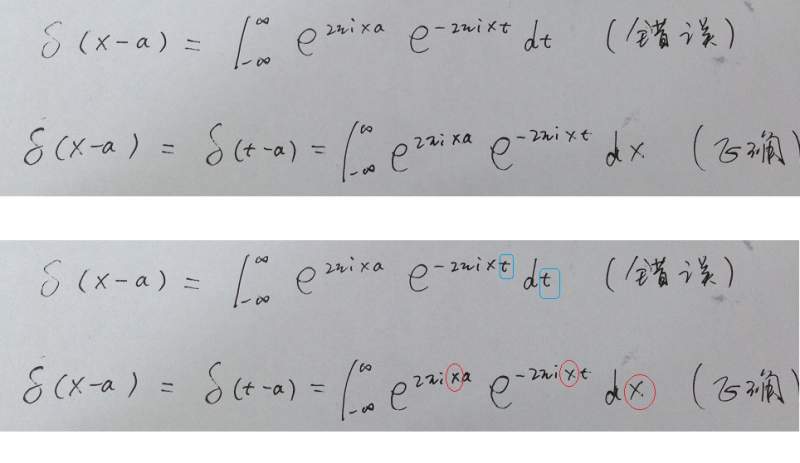 δ(x-a) = ∫_{-∞}^{∞} e^{2πixa} e^{-2πixt} dt (错误)
δ(x-a) = δ(t-a) = ∫_{-∞}^{∞} e^{2πixa} e^{-2πixt} dx (正确)
δ(x-a) = ∫_{-∞}^{∞} e^{2πixa} e^{-2πixt} dt (错误)
δ(x-a) = δ(t-a) = ∫_{-∞}^{∞} e^{2πixa} e^{-2πixt} dx (正确)